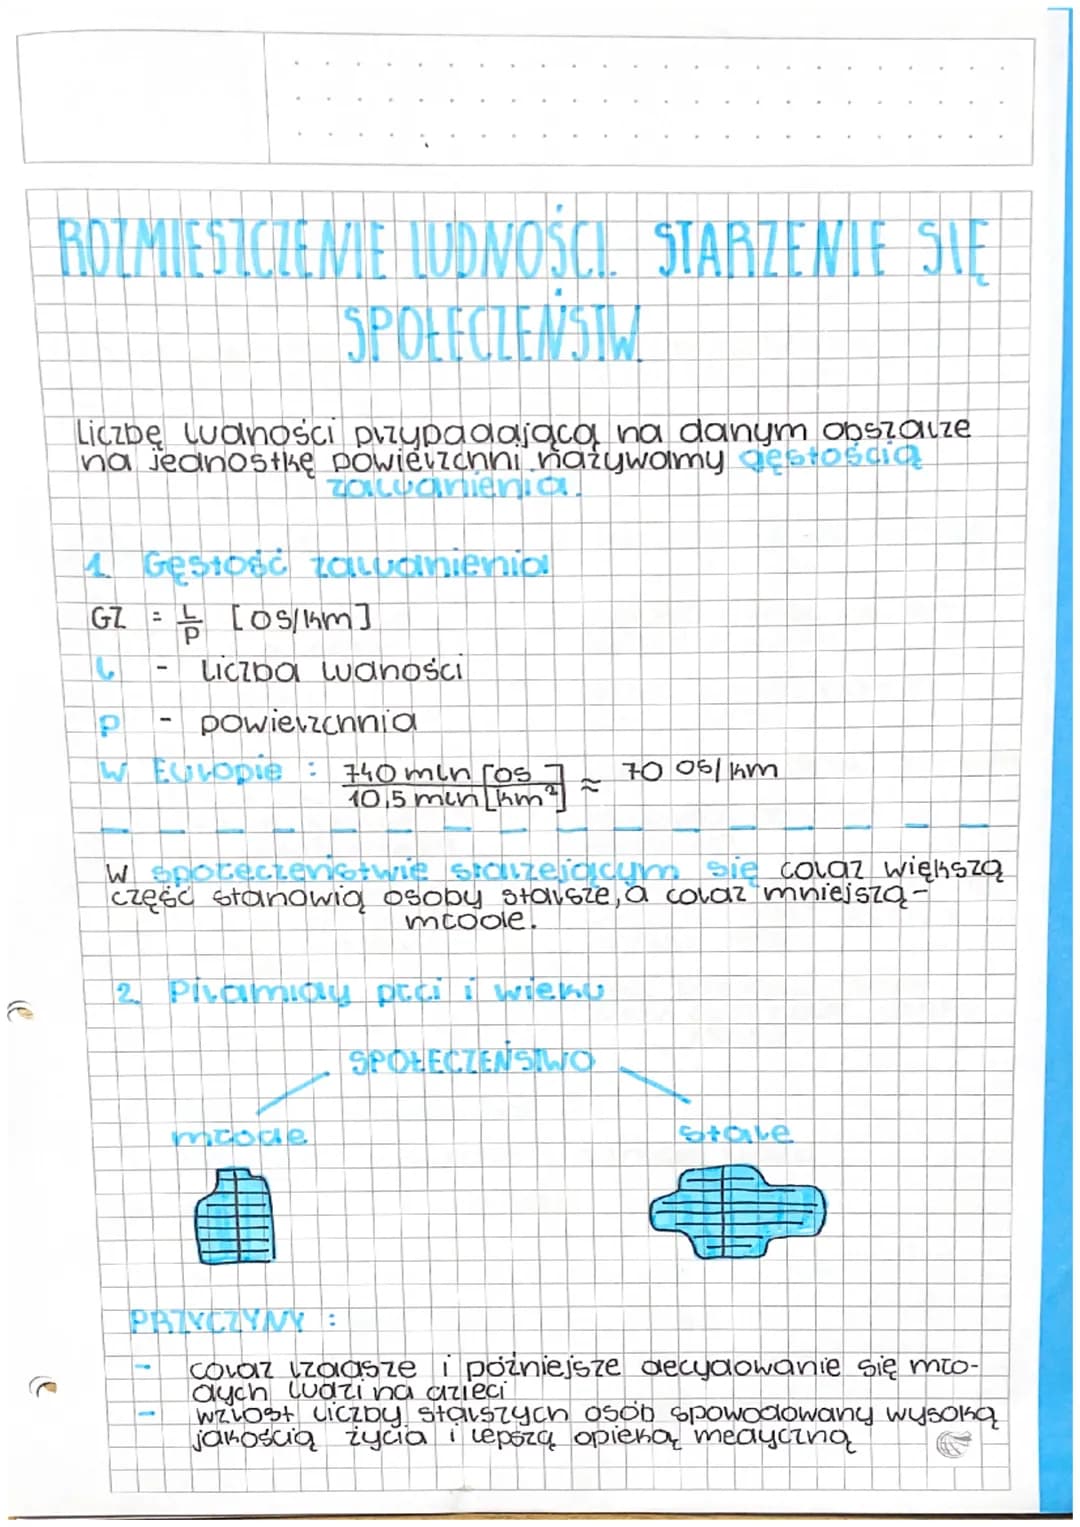 ROZMIESZCZENIE LUDNOŚCI. STARZENIE SIĘ
SPOŁECZEŃSTW.
Liczbę ludności przypadającą na danym obszarze
na jednostkę powierzchni nazywamy gęstością
zaludnienia.
1. Gęstość zaludnienia
GZ = L/P [OS/km]
L - Liczba ludności
P - powierzchnia
W Europie : 740 mln [os] / 10,5 mln [km²] ≈ 70 OS/km
W społeczeństwie starzejącym się coraz większą
część stanowią osoby starsze, a coraz mniejszą -
młode.
2. Piramidy płci i wieku
SPOŁECZEŃSTWO
młode stare
PRZYCZYNY :
- coraz rzadsze i późniejsze decydowanie się mło-
dych ludzi na dzieci
- wzrost liczby starszych osób spowodowany wysoką
jakością życia i lepszą opieką medyczną